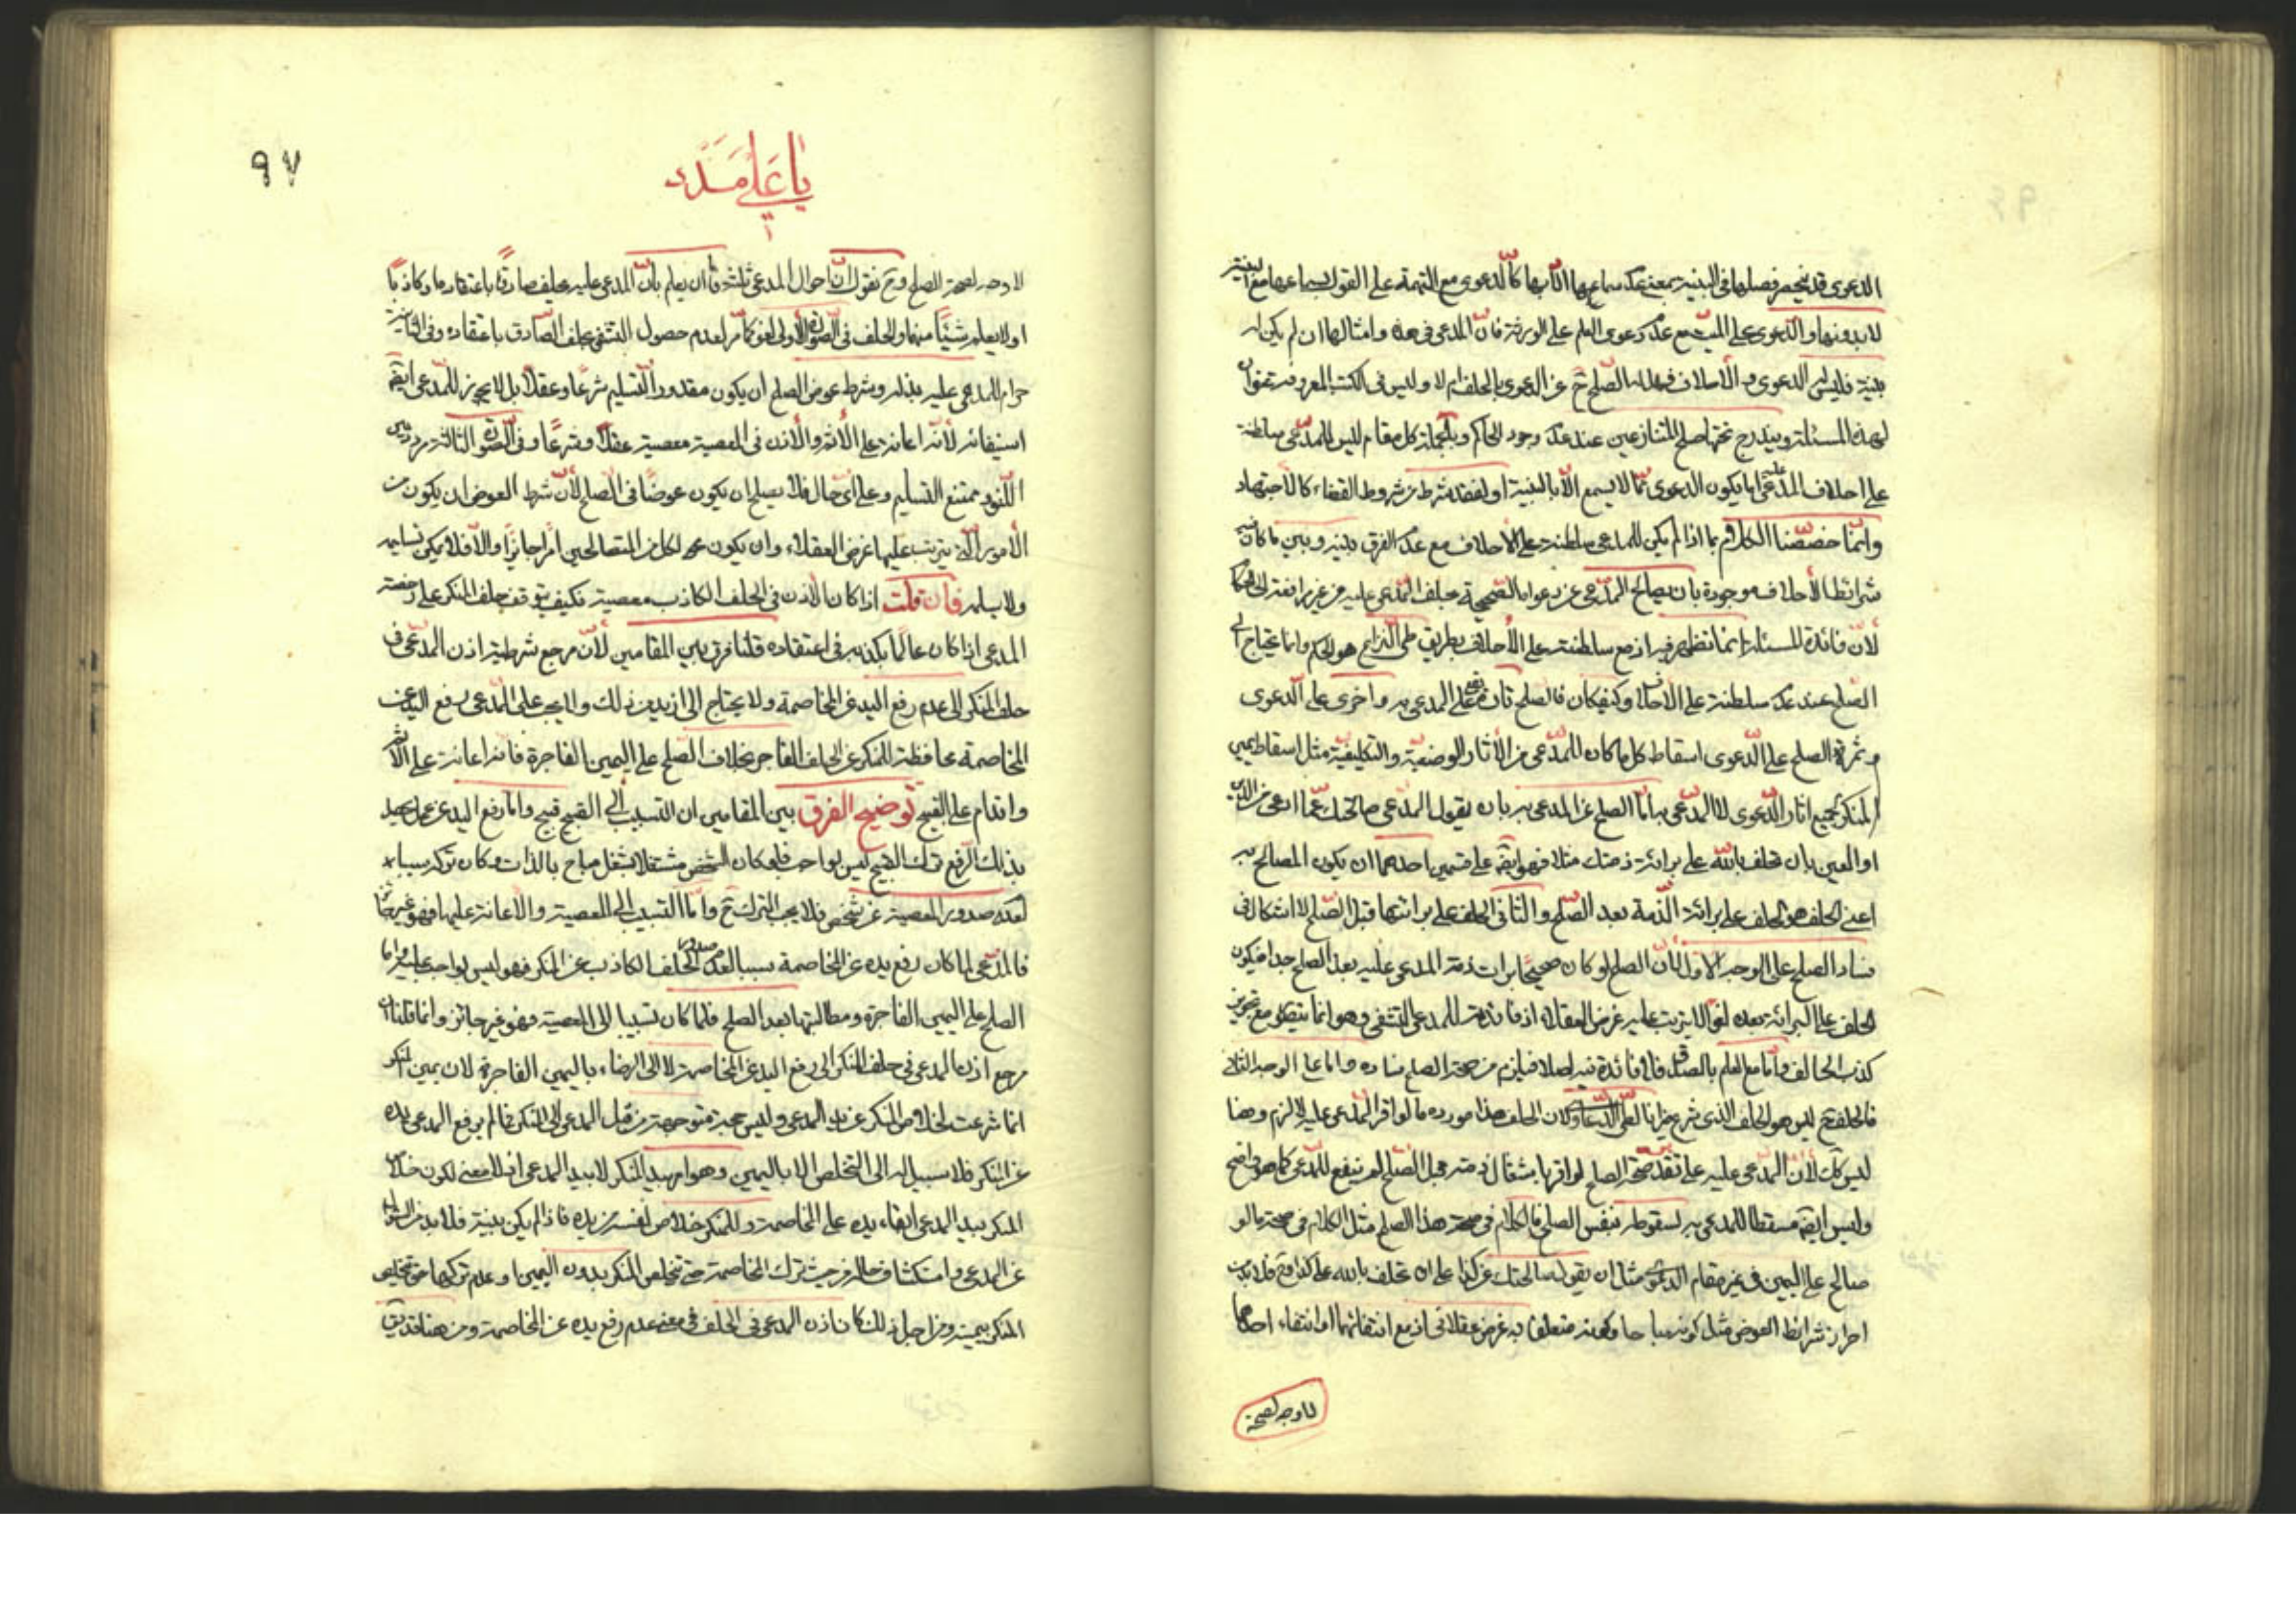 الدعوى قد ينحصر فصلها في البينة بمعنى عدم سماعها الا بها كالدعوى مع التهمة على القول بسماعها مع البينة
لا بدونها والدعوى على الميت مع عدم دعوى العلم على الورثة فان المدعي في هذه وامثالها ان لم يكن له
بينة فليس له الدعوى ولا الاحلاف فهل له الصلح ح عن الدعوى بالحلف ام لا وليس في الكتب المعروفة تعرض
لهذه المسئلة ويندرج تحتها صلح المتنازعين عند عدم وجود الحاكم وبالجملة كل مقام ليس للمدعي سلطنة
على احلاف المدعى عليه اما بكون الدعوى مما لا يسمع الا بالبينة او لفقد شرط من شروط القضاء كالاجتهاد
وانما خصصنا الكلام بما اذا لم يكن للمدعي سلطنة على الاحلاف مع عدم الفرق بينه وبين ما كان فيه
شرائط الاحلاف موجودة بان يصالح المدعي عن دعواه الصحيحة بحلف المدعى عليه من غير مرافعة الى الحاكم
لان فائدة المسئلة انما تظهر فيه اذ مع سلطنته على الاحلاف بطريق طي النزاع هو الحكم وانما يحتاج الى
الصلح عند عدم سلطنته على الاحلاف وكيف كان فالصلح تارة يقع على المدعى به واخرى على الدعوى
وثمرة الصلح على الدعوى اسقاط كل ما كان للمدعي من الآثار الوضعية والتكليفية مثل اسقاط يمين
المنكر وجميع آثار الدعوى لا المدعى به اما الصلح عن المدعى به بان يقول المدعي صالحتك عما ادعي من الدين
او العين بان تحلف بالله على برائة ذمتك مثلا فهو ايضا على قسمين احدهما ان يكون المصالح به
اعني الحلف هو الحلف على برائة الذمة بعد الصلح والثاني الحلف على برائتها قبل الصلح لا اشكال في
فساد الصلح على الوجه الاول لان الصلح لو كان صحيحا برات ذمة المدعى عليه بعد الصلح جدا فيكون
الحلف على البرائة بعده لغوا لا يترتب عليه غرض العقلاء اذ فائدته للمدعي التشفي وهو انما يتصور مع تجويز
كذب الحالف واما مع العلم بالصدق فلا فائدة فيه اصلا فيلزم من صحة الصلح فساده واما على الوجه الثاني
فالحلف ح ليس هو الحلف الذي شرع ميزانا لفصل لان الحلف هذا مورده ما لو اقر المدعى عليه لالزم وهنا
ليس كك لان المدعى عليه على تقدير صحة الصلح لو اقر باشتغال ذمته قبل الصلح لم ينفع للمدعي كما هو واضح
وليس ايضا مسقطا للمدعى به لسقوطه بنفس الصلح فالكلام في صحة هذا الصلح مثل الكلام في صحة ما لو
صالح على اليمين في غير مقام الدعوى مثل ان يقول صالحتك عن كذا على ان تحلف بالله على كذا وح فلا بد من
احراز شرائط العوض مثل كونه مباحا وكونه متعلقا به غرض عقلائي اذ مع انتفائهما او انتفاء احدهما
لا وجه لصحة
يا علي مدد
٩٧
لا وجه لصحة الصلح وح نقول ان احوال المدعي ثلثة فاما ان يعلم بان المدعى عليه يحلف صادقا باعتقاده او كاذبا
او لا يعلم شيئا منهما والحلف في الصورة الاولى لغو كما مر لعدم حصول التشفي بحلف الصادق باعتقاده وفي الثانية
حرام للمدعى عليه بذله وشرط عوض الصلح ان يكون مقدور التسليم شرعا وعقلا بل لا يجوز للمدعي ايضا
استيفائه لانه اعانة على الاثم والاذن في المعصية معصية عقلا وشرعا وفي الصورة الثالثة مردد بين
اللغو وممتنع التسليم وعلى اي حال فلا يصلح ان يكون عوضا في الصلح لان شرط العوض ان يكون من
الامور التي يترتب عليها غرض العقلاء وان يكون لكل من المتصالحين امرا جائزا والا فلا يمكن تسليمه
ولا تسلمه فان قلت اذا كان الاذن في الحلف الكاذب معصية فكيف يتوقف حلف المنكر على رخصة
المدعي اذا كان عالما بكذبه في اعتقاده قلنا فرق بين المقامين لان مرجع شرطية اذن المدعي في
حلف المنكر الى عدم رفع اليد عن المخاصمة ولا يحتاج الى ازيد من ذلك ولا يجب على المدعي رفع اليد عن
المخاصمة محافظة للمنكر عن الحلف الفاجر بخلاف الصلح على اليمين الفاجرة فانه اعانة على الاثم
واقدام على القبيح توضيح الفرق بين المقامين ان التسبيب الى القبيح قبيح واما رفع اليد عن عمل يحصل
بذلك الرفع ترك القبيح ليس بواجب فلو كان الشخص مشتغلا بشغل مباح بالذات وكان تركه سببا
لعدم صدور المعصية عن شخص فلا يجب الترك ح واما التسبيب الى المعصية والاعانة عليها فهو غير جائز
فالمدعي لما كان رفع يده عن المخاصمة سببا لعدم صدور الحلف الكاذب عن المنكر فهو ليس بواجب عليه واما
الصلح على اليمين الفاجرة ومطالبتها بعد الصلح فلما كان تسبيبا الى المعصية فهو غير جائز وانما قلنا ان
مرجع اذن المدعي في حلف المنكر الى رفع اليد عن المخاصمة لا الى الرضاء باليمين الفاجرة لان يمين المنكر
انما شرعت لخلاص المنكر عن يد المدعي وليس حجة متوجهة من قبل المدعي الى المنكر فما لم يرفع المدعي يده
عن المنكر فلا سبيل له الى التخلص الا باليمين وهو امر بيد المنكر لا بيد المدعي اذ لا معنى لكون خلاص
المنكر بيد المدعي ابقاء يده على المخاصمة وللمنكر خلاص نفسه من يده فاذا لم يكن بينة فلا بد من السؤال
عن المدعي واستكشاف حاله من حيث ترك المخاصمة حتى يتخلص المنكر بدون اليمين او عدم تركها حتى يتخلص
المنكر بيمينه ومن اجل ذلك كان اذن المدعي في الحلف في معنى عدم رفع يده عن المخاصمة ومن هنا قد يق